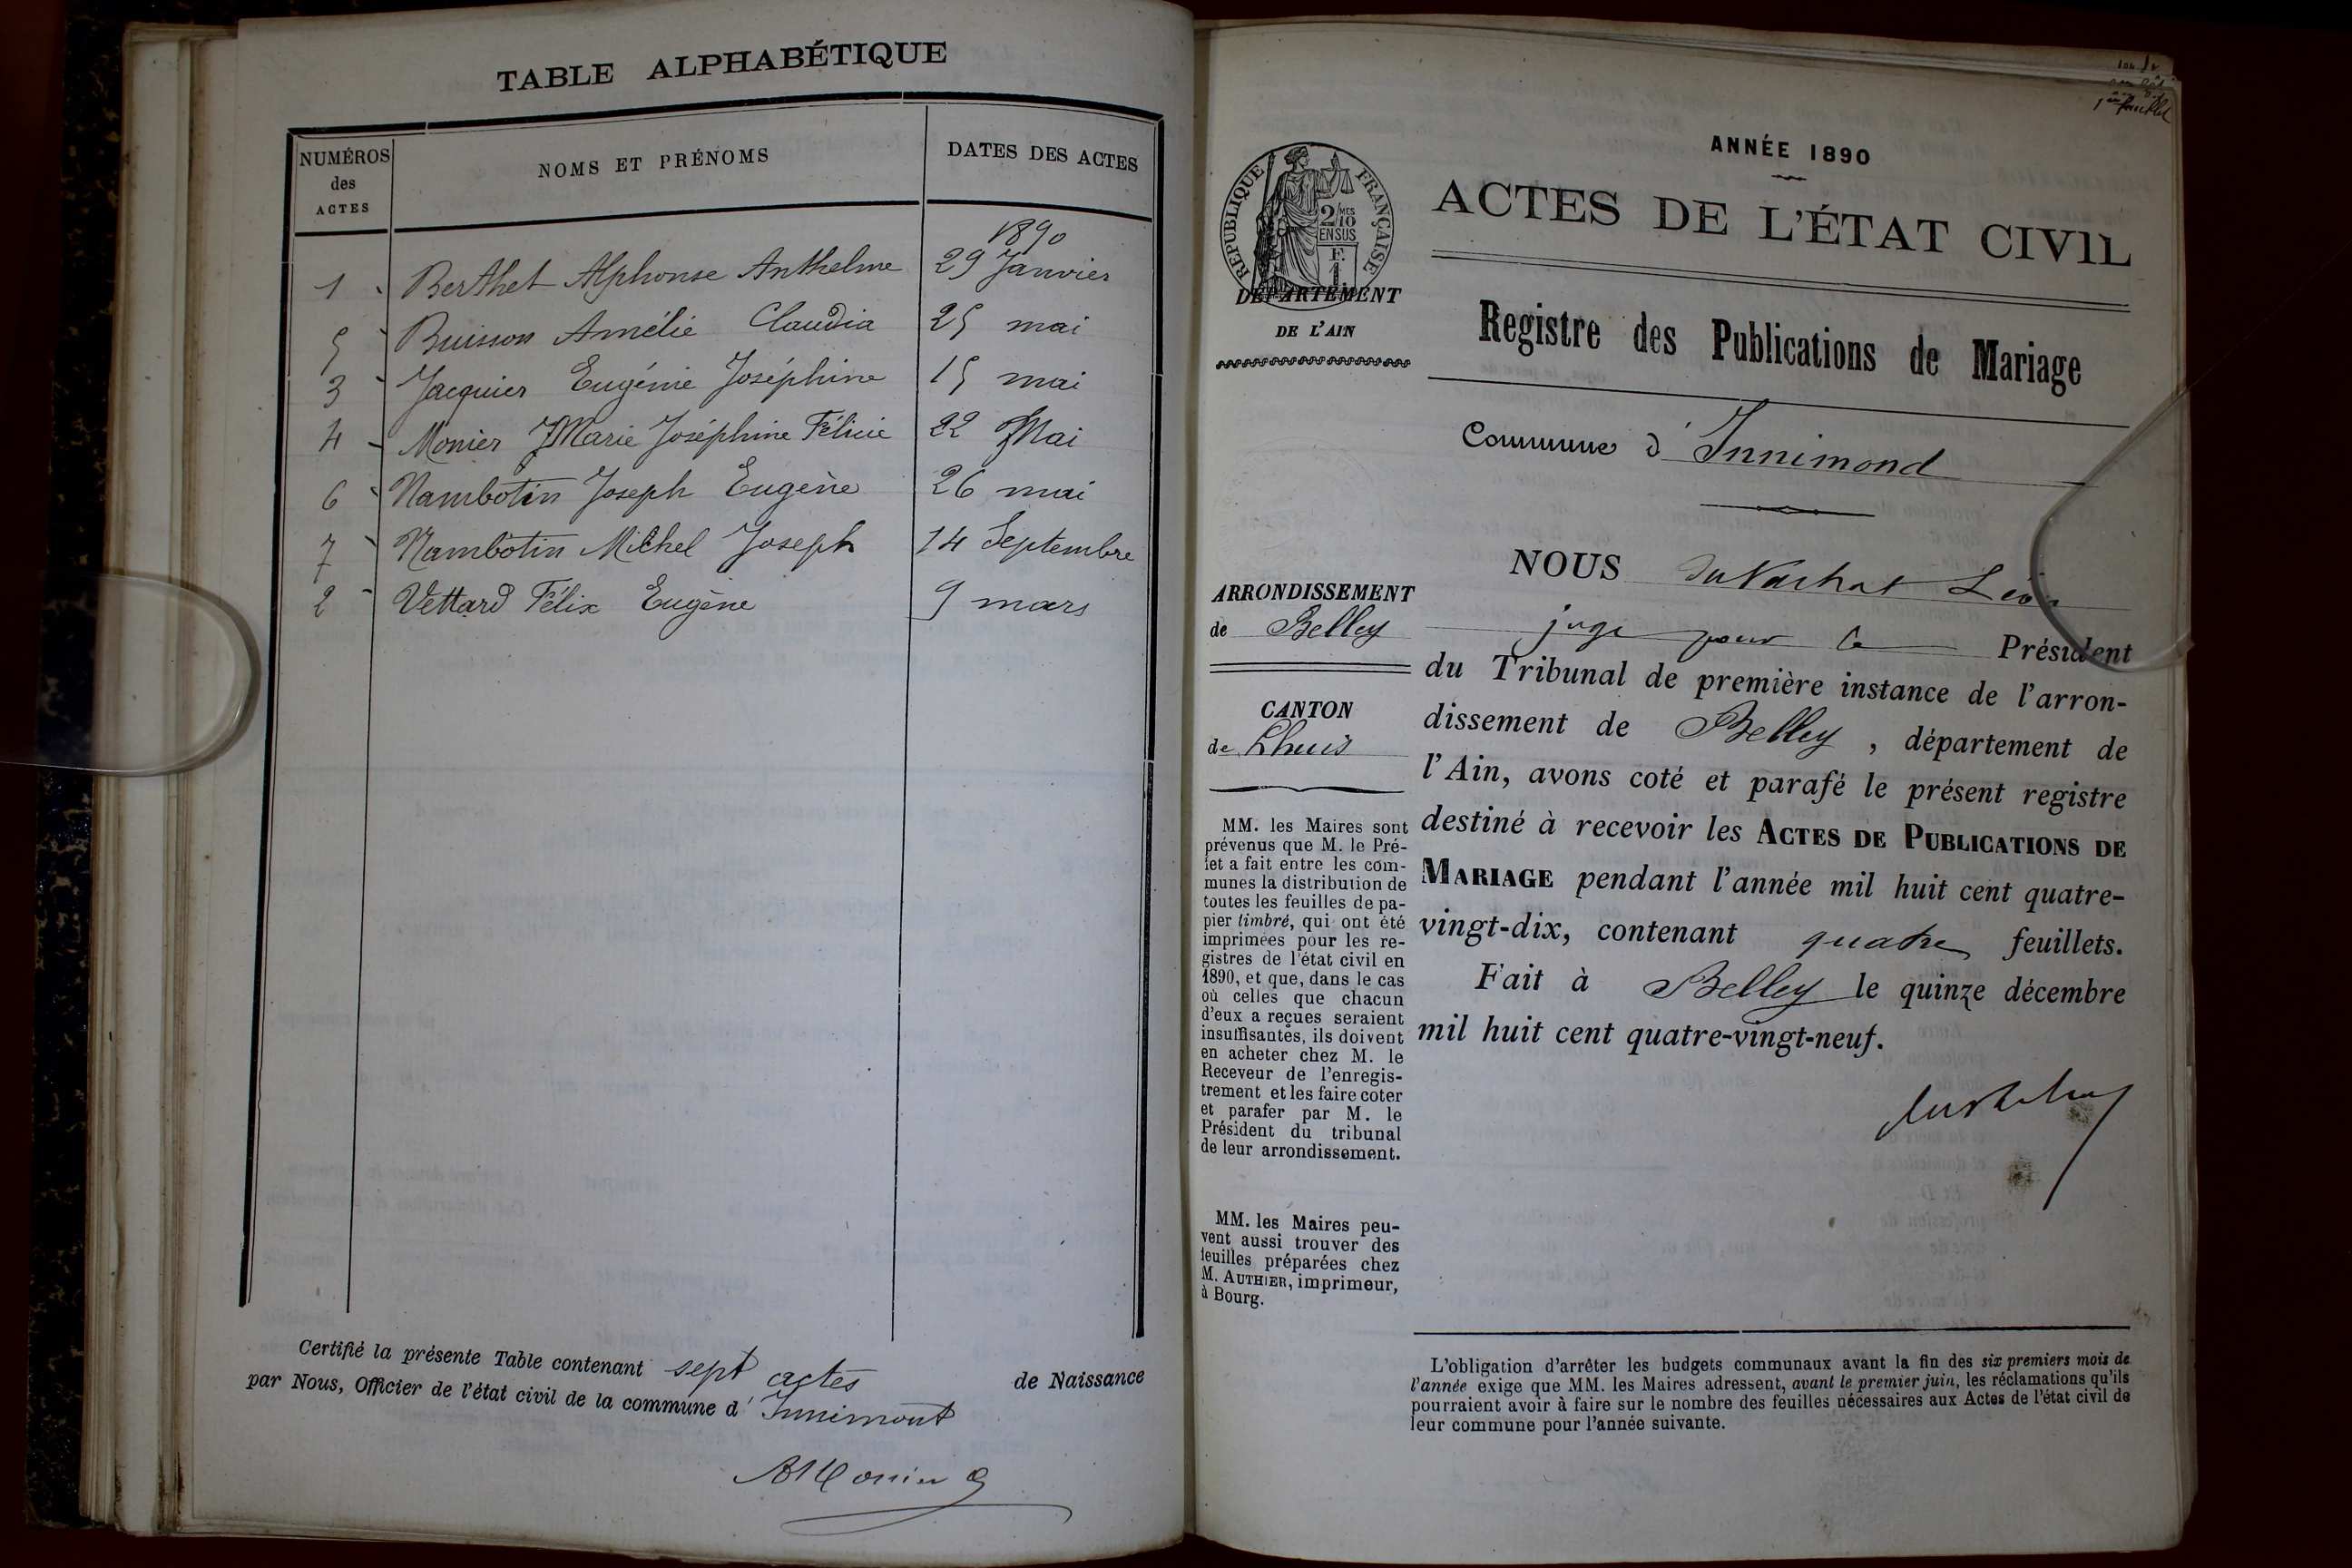 TABLE ALPHABÉTIQUE
NUMÉROS
des
ACTES
NOMS ET PRÉNOMS
DATES DES ACTES
1890
1 Berthet Alphonse Anthelme 29 Janvier
5 Buisson Amélie Claudia 25 mai
3 Jacquier Eugénie Joséphine 15 mai
4 Monier Marie Joséphine Félicie 22 Mai
6 Nambotin Joseph Eugène 26 mai
7 Nambotin Michel Joseph 14 Septembre
2 Vettard Félix Eugène 9 mars
Certifié la présente Table contenant sept actes de Naissance
par Nous, Officier de l'état civil de la commune d' Innimont
Monier
1er feuillet
ANNÉE 1890
RÉPUBLIQUE FRANÇAISE
2/MES
10
EN SUS
F.
1
ACTES DE L'ÉTAT CIVIL
DÉPARTEMENT
DE L'AIN
Registre des Publications de Mariage
Commune d' Innimond
ARRONDISSEMENT
de Belley
CANTON
de Lhuis
MM. les Maires sont
prévenus que M. le Pré-
fet a fait entre les com-
munes la distribution de
toutes les feuilles de pa-
pier timbré, qui ont été
imprimées pour les re-
gistres de l'état civil en
1890, et que, dans le cas
où celles que chacun
d'eux a reçues seraient
insuffisantes, ils doivent
en acheter chez M. le
Receveur de l'enregis-
trement et les faire coter
et parafer par M. le
Président du tribunal
de leur arrondissement.
MM. les Maires peu-
vent aussi trouver des
feuilles préparées chez
M. AUTHIER, imprimeur,
à Bourg.
NOUS Léon
juge pour le Président
du Tribunal de première instance de l'arron-
dissement de Belley, département de
l'Ain, avons coté et parafé le présent registre
destiné à recevoir les ACTES DE PUBLICATIONS DE
MARIAGE pendant l'année mil huit cent quatre-
vingt-dix, contenant quatre feuillets.
Fait à Belley le quinze décembre
mil huit cent quatre-vingt-neuf.
L'obligation d'arrêter les budgets communaux avant la fin des six premiers mois de
l'année exige que MM. les Maires adressent, avant le premier juin, les réclamations qu'ils
pourraient avoir à faire sur le nombre des feuilles nécessaires aux Actes de l'état civil de
leur commune pour l'année suivante.